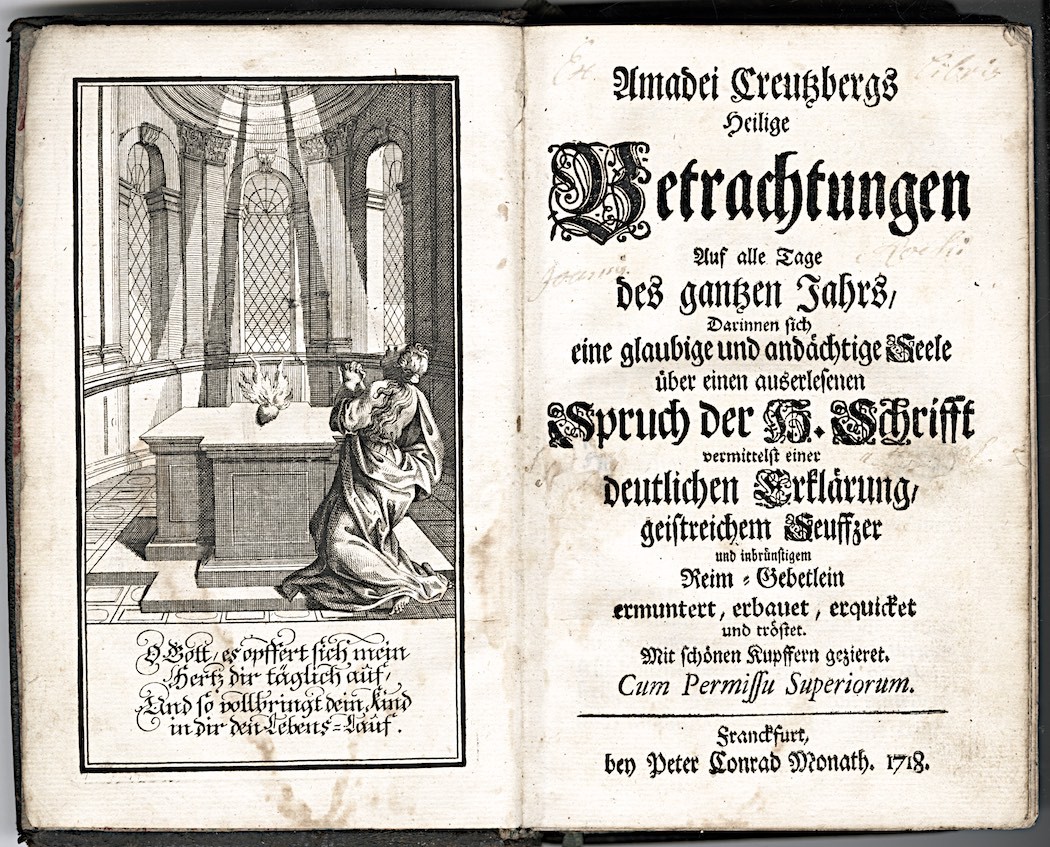 O Gott, es opffert sich mein
Hertz dir täglich auf,
Und so vollbringt dein Kind
in dir den Lebens=Lauf.
Ex Libris
Amadei Creutzbergs
Heilige
Betrachtungen
Auf alle Tage
des gantzen Jahrs/
Darinnen sich
eine glaubige und andächtige Seele
über einen auserlesenen
Spruch der H. Schrifft
vermittelst einer
deutlichen Erklärung/
geistreichem Seuffzer
und inbrünstigem
Reim = Gebetlein
ermuntert, erbauet, erquicket
und tröstet.
Mit schönen Kupffern gezieret.
Cum Permissu Superiorum.
Franckfurt,
bey Peter Conrad Monath. 1718.